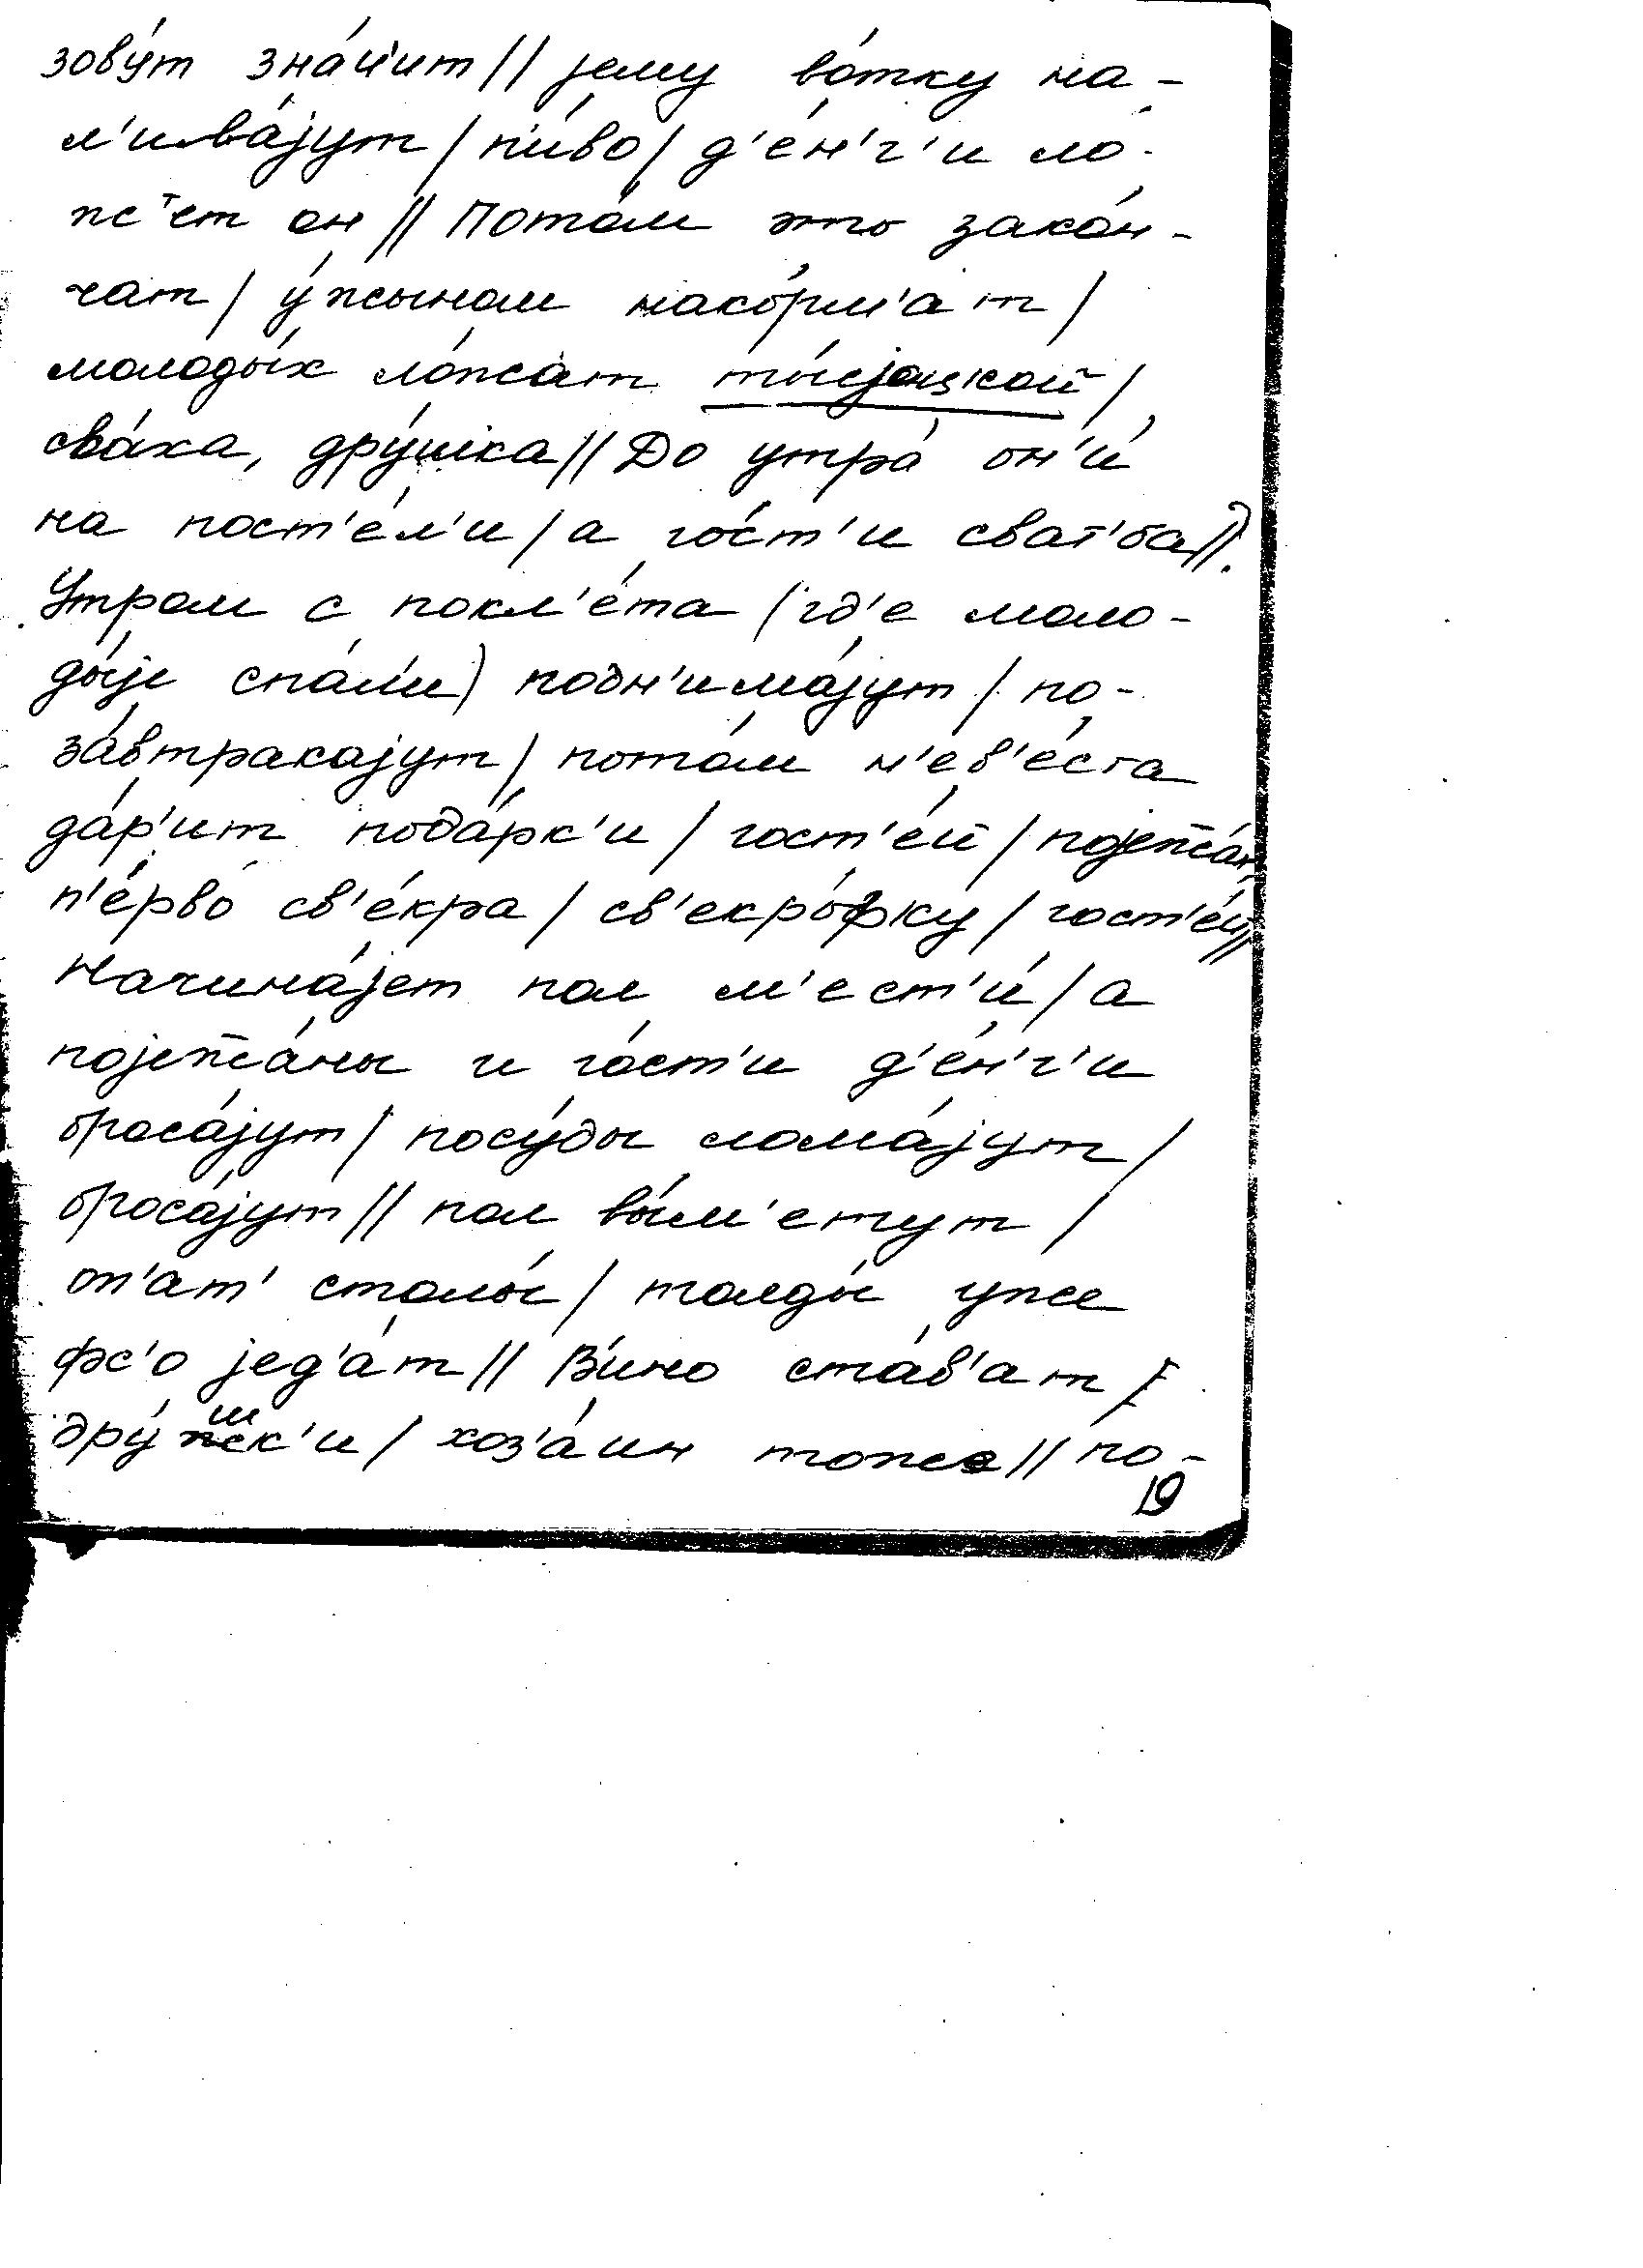 зову́т зна́ч'ит // јему во́тку на-
л'ива́јут / пи́во / д'е́н'г'и ло́-
ж'ет он // Пото́м это зако́н-
чат / у́жыном нако́рм'ат /
молоды́х ло́жат ты́сјацкой /
сва́ха, дру́шка // До утра́ он'и́
на пост'е́л'и / а го́ст'и сват'ба //).
Утром с покл'е́та (гд'е моло-
ды́је спа́л'и) подн'има́јут / по-
за́втракајут / пото́м н'ев'е́ста
да́р'ит пода́рк'и / гост'е́й / појежа́н
п'е́рво св'е́кра / св'екро́фку / гост'е́й //
Начина́јет пол м'ест'и́ / а
појежа́ны и го́ст'и д'е́н'г'и
броса́јут / посу́ды лома́јут /
броса́јут // пол вы́м'етут /
оп'ат' столы́ / толды́ уже
фс'о јед'а́т // В'ино ста́в'ат /
дру́шк'и / хоз'а́ин тоже // по-
19